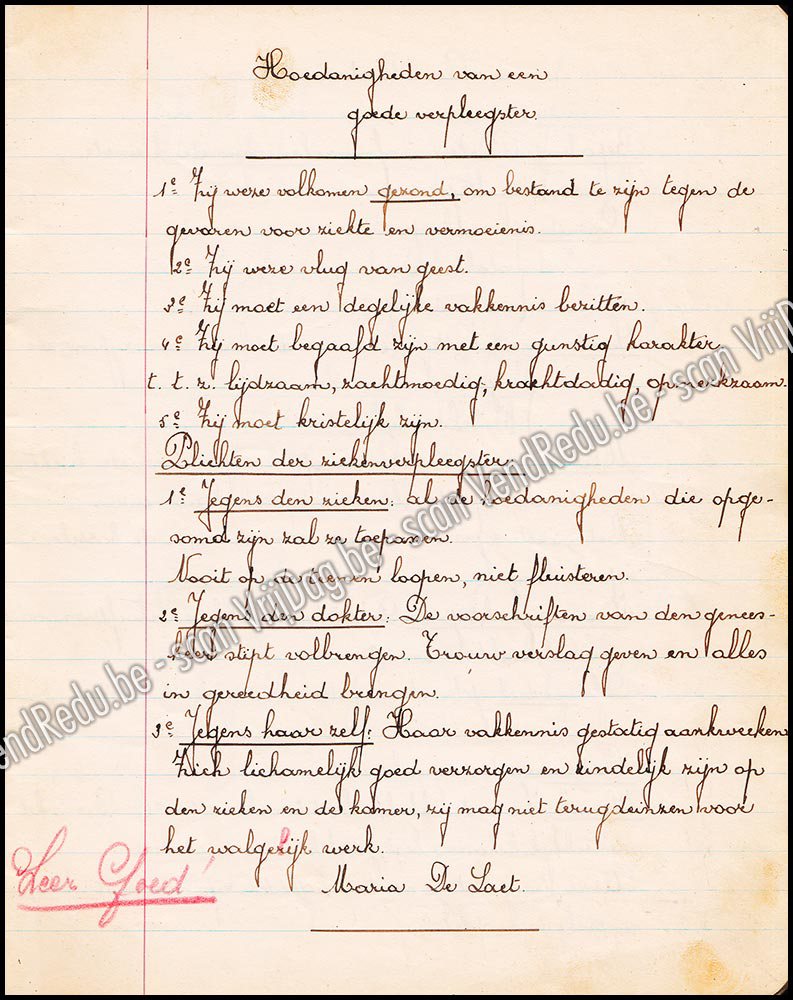 Hoedanigheden van een
goede verpleegster.
1e Zij weze volkomen gezond, om bestand te zijn tegen de
gevaren voor ziekte en vermoeienis.
2e Zij weze vlug van geest.
3e Zij moet een degelijke vakkennis bezitten.
4e Zij moet begaafd zijn met een gunstig karakter.
t. t. z. lijdzaam, zachtmoedig, krachtdadig, opmerkzaam.
5e Zij moet kristelijk zijn.
Plichten der ziekenverpleegster.
1e Jegens den zieken: al de hoedanigheden die opge-
somd zijn zal ze toepassen.
Nooit op de teenen loopen, niet fluisteren.
2e Jegens den dokter: De voorschriften van den genees-
heer stipt volbrengen. Trouw verslag geven en alles
in gereedheid brengen.
3e Jegens haar zelf: Haar vakkennis gestadig aankweeken
Zich lichamelijk goed verzorgen en zindelijk zijn op
den zieken en de kamer, zij mag niet terugdeinzen voor
het walgelijk werk.
Zeer Goed!
Maria De Laet.
VendRedu.be - scan VrijDag.be - scan VendRedu.be - scan VrijD